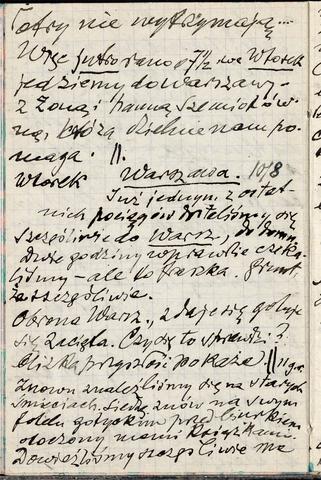 nie wytrzymają...
Więc jutro rano o 7½ we Wtorek
jedziemy do Warszawy –
z Żoną i Hanną Szemiotów-
ną, która dzielnie nam po-
maga. ||.
Wtorek Warszawa. 10/8
Już jednym z ostat-
nich pociągów się
szczęśliwie do Warsz., do domu
Dwie godziny wprawdzie czeka-
liśmy – ale to fraszka. Grunt
że szczęśliwie.
Obrona Warsz., zdaje się gotuje
się zacięta. Czy się to sprawdzi?
Bliska przyszłość pokaże ||
Znowu znaleźliśmy się na starych
śmieciach. Siedzę znów na swym
fotelu gotyckim przed biurkiem
otoczony memi książkami.
Dowieźliśmy szczęśliwie me